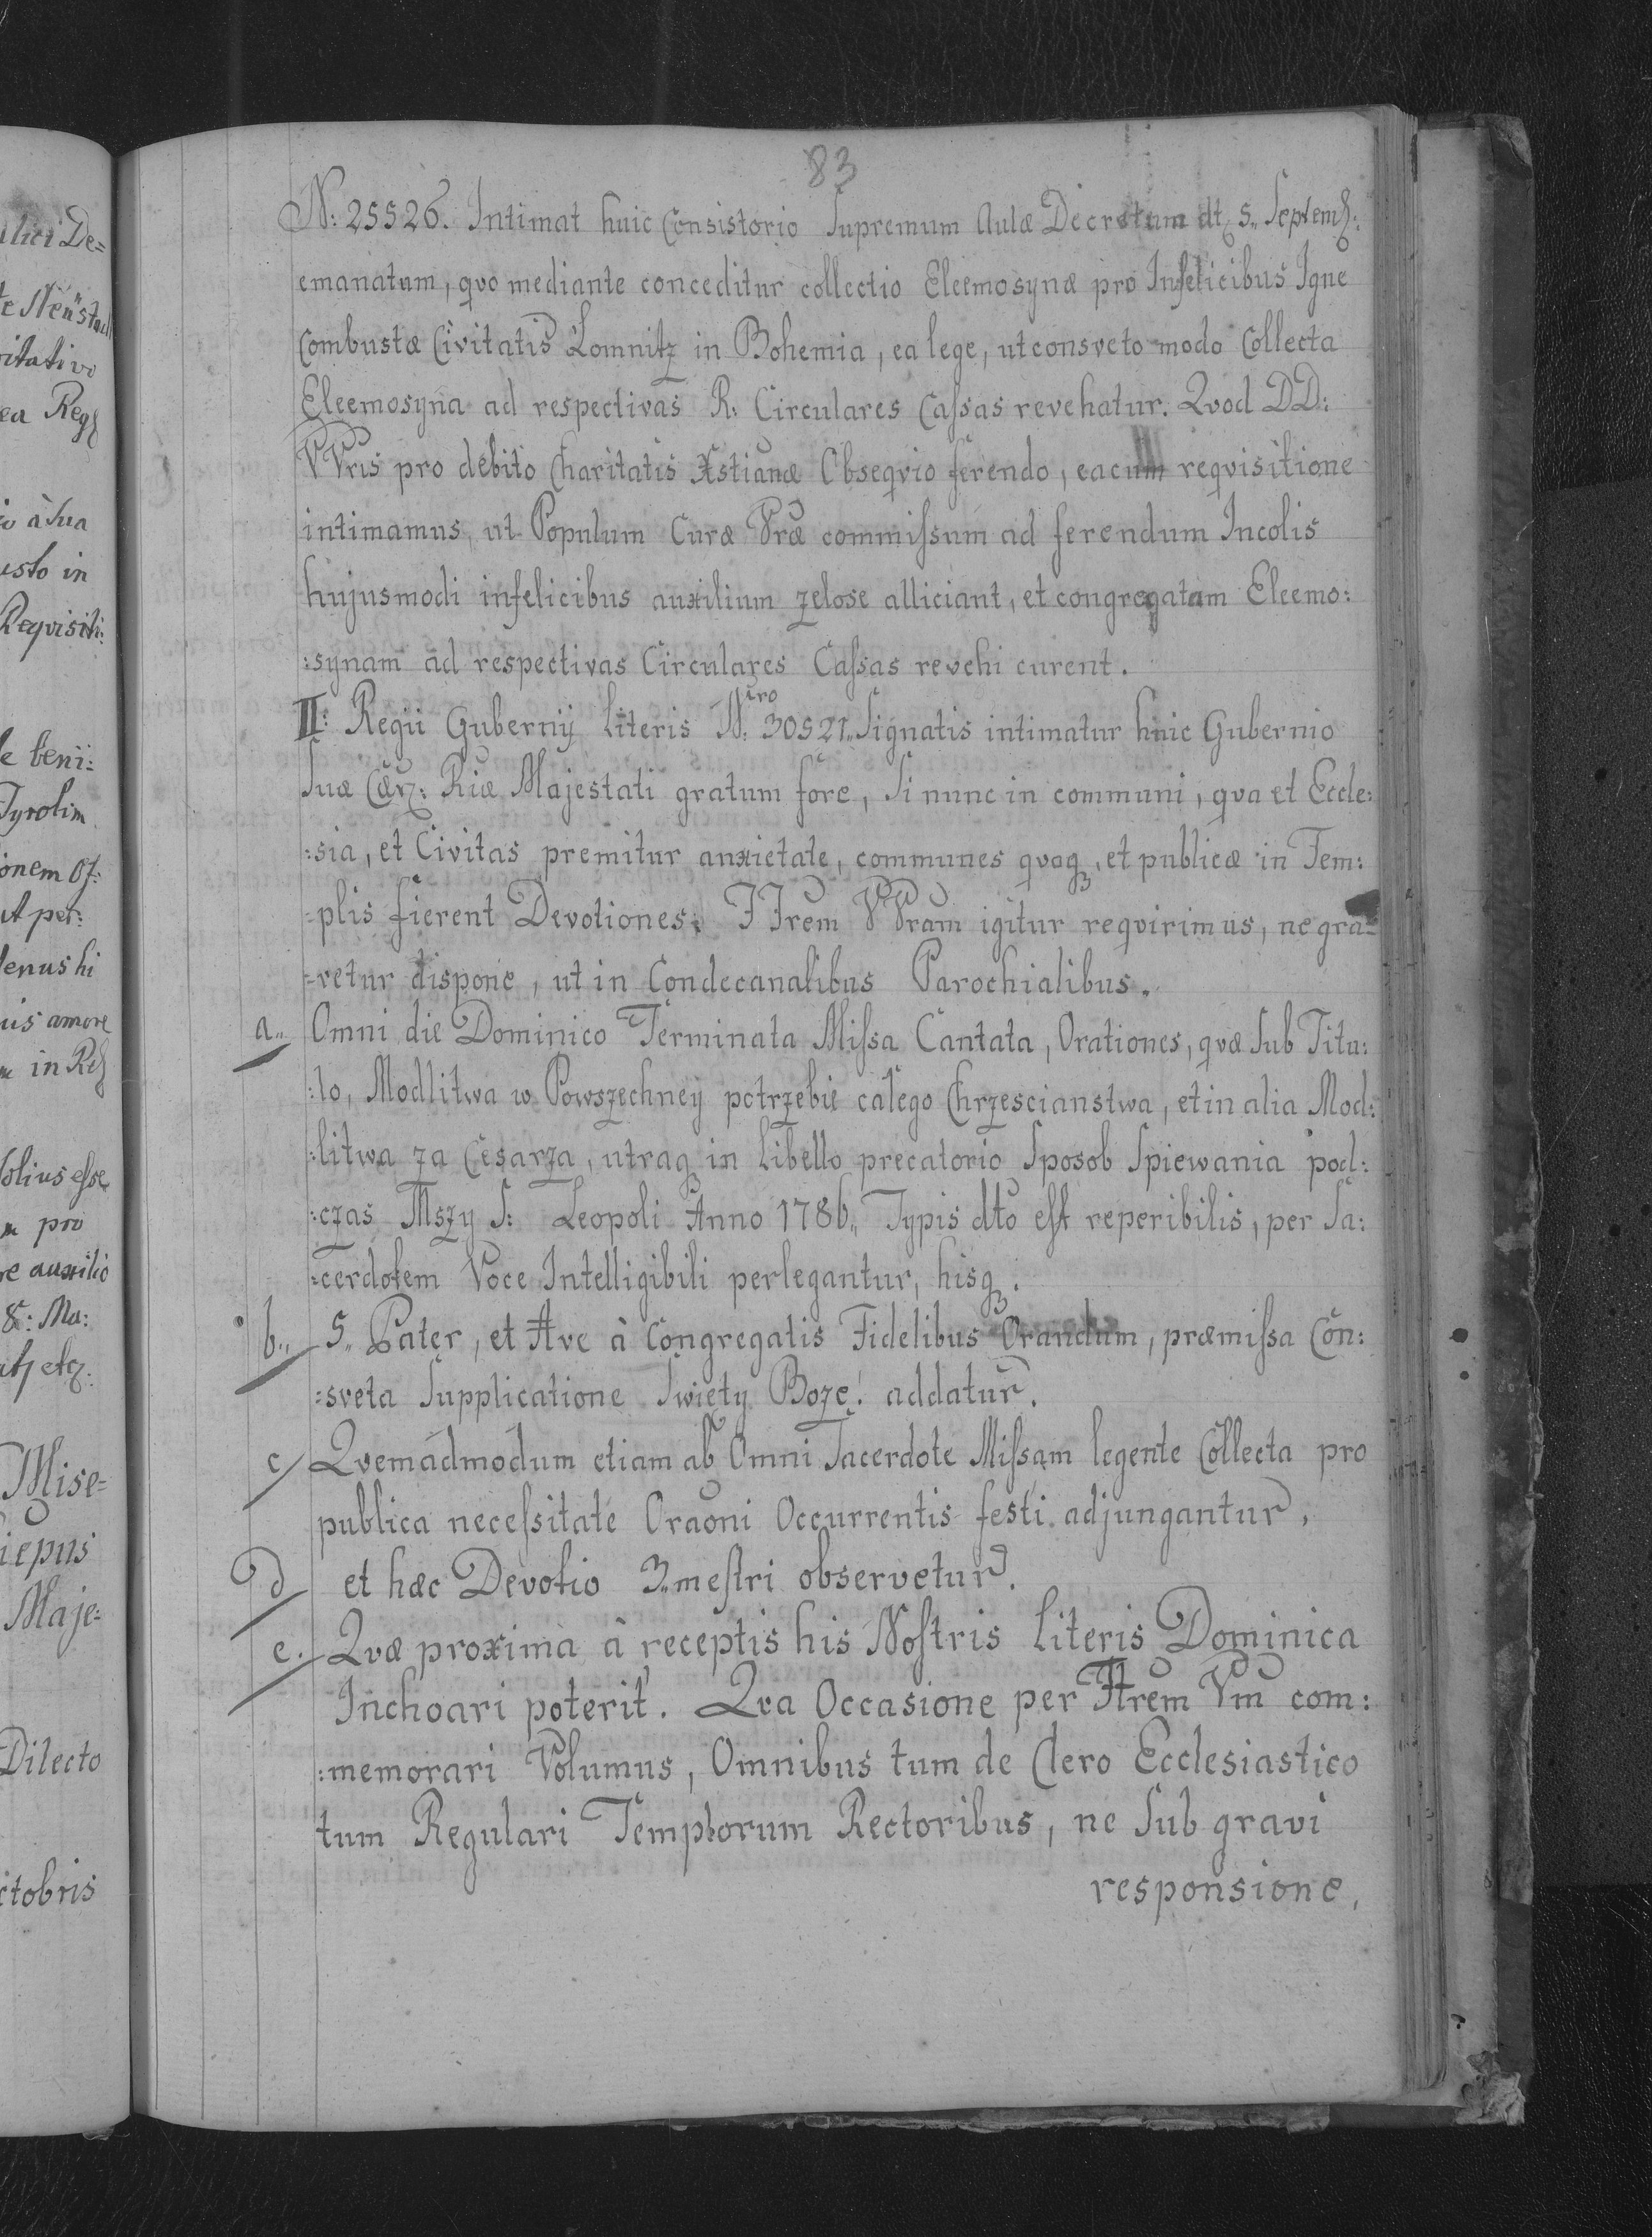 ulici De=
te Neüstadl
ritativo
ea Reg
io à Sua
usto in
Reqvisiti:
le beni:
Tyrolim
ionem Of:
ut per:
lenus hi
ius amore
in Reg
Solius esse
m pro
re auxilio
8: Ma:
etc:
Mise=
iepus
Maje=
Dilecto
ctobris
83
N: 25526. Intimat huic Consistorio Supremum Aulæ Decretum dt 5,, Septemb:
emanatum, qvo mediante conceditur collectio Eleemosynæ pro Infelicibus Igne
Combustæ Civitatis Lomnitz in Bohemia, ea lege, ut consveto modo Collecta
Eleemosyna ad respectivas R: Circulares Caſsas revehatur. Qvod DD:
VVris pro debito Charitatis Xstianæ Obseqvio ferendo, ea cum reqvisitione
intimamus, ut Populum Curæ Vræ commiſsum ad ferendum Incolis
hujusmodi infelicibus auxilium zelose alliciant, et congregatam Eleemo:
:synam ad respectivas Circulares Caſsas revehi curent.
II: Regii Gubernij Literis N:ro 30521,, Signatis intimatur huic Gubernio
Suæ Cæs: Riæ Majestati gratum fore, Si nunc in communi, qva et Eccle:
:sia, et Civitas premitur anxietate, communes qvoq, et publicæ in Tem:
:plis fierent Devotiones. Ittrem VVram igitur reqvirimus, ne gra=
=vetur dispone, ut in Condecanalibus Parochialibus.
a,, Omni die Dominico Terminata Miſsa Cantata, Orationes, qvæ Sub Titu:
:lo, Modlitwa w Powszechney potrzebie całego Chrzescianstwa, et in alia Mod:
:litwa za Cesarza, utraq in Libello precatorio Sposob Spiewania pod:
:czas Mszy S: Leopoli Anno 1786,, Typis dto eſt reperibilis, per Sa:
:cerdotem Voce Intelligibili perlegantur, hisq.
b,, 5,, Pater, et Ave à Congregatis Fidelibus Orandum, præmiſsa Con:
:sveta Supplicatione Swięty Boze! addatur.
c Qvemadmodum etiam ab Omni Sacerdote Miſsam legente Collecta pro
publica neceſsitate Oraoni Occurrentis festi adjungantur,
d et hæc Devotio 3,,meſtri observetur.
e. Qvæ proxima à receptis his Noſtris Literis Dominica
Inchoari poterit. Qva Occasione per Ittrem Vm com:
:memorari Volumus, Omnibus tum de Clero Ecclesiastico
tum Regulari Templorum Rectoribus, ne Sub gravi
responsione,